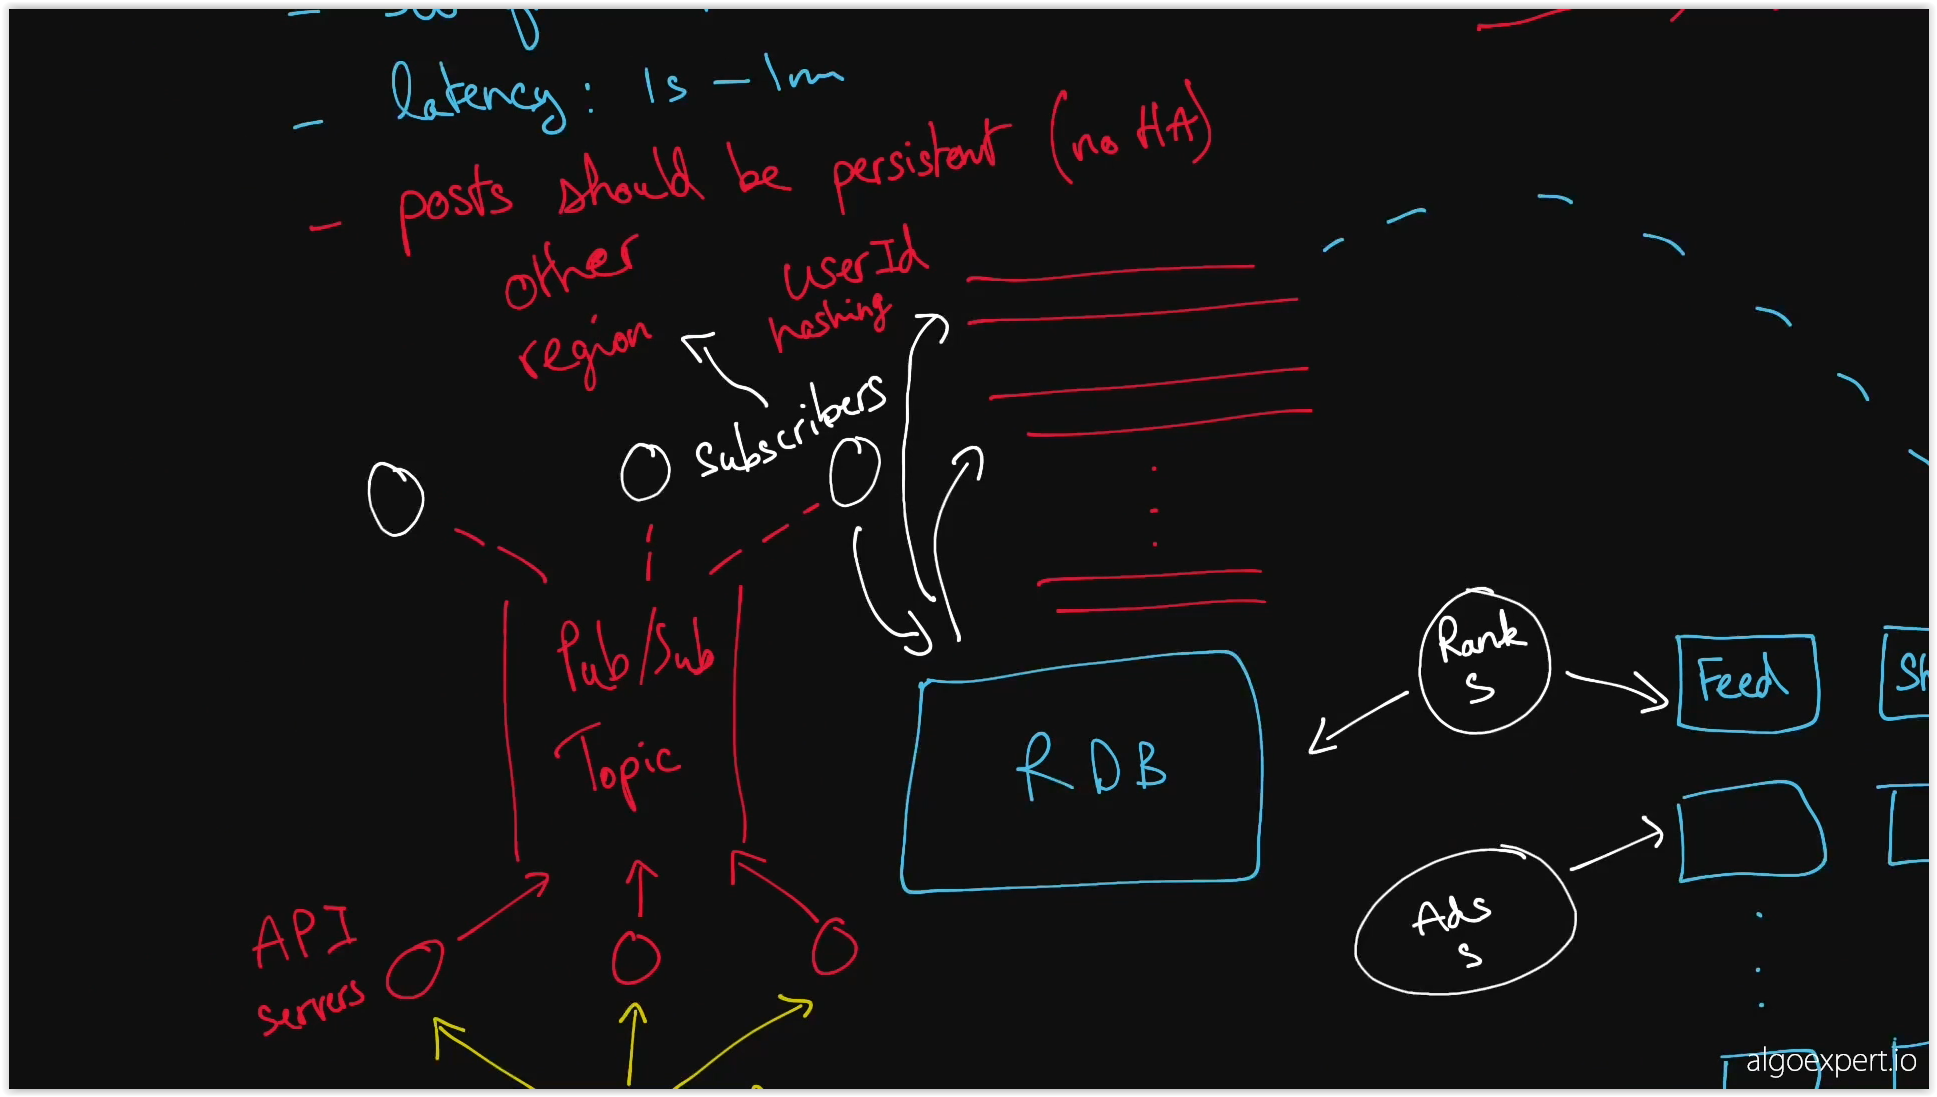 - latency: 1s - 1m
- posts should be persistent (no HA)
other
region
userId
hashing
subscribers
Pub/Sub
Topic
RDB
Rank
S
Feed
Sh
Ads
S
API
servers
algoexpert.io